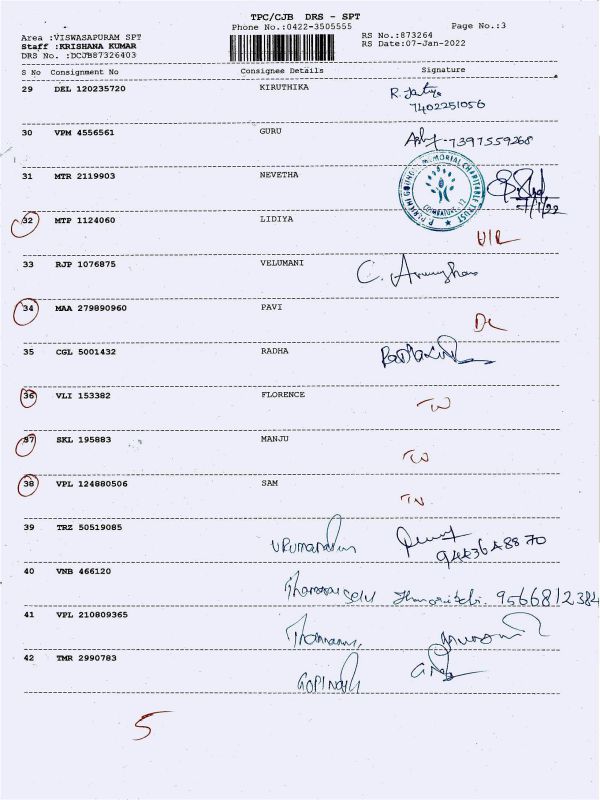 TPC/CJB DRS - SPT
Phone No.:0422-3505555
Page No.:3
Area :VISWASAPURAM SPT
Staff :KRISHANA KUMAR
DRS No. :DCJB87326403
RS No.:873264
RS Date:07-Jan-2022
S No Consignment No Consignee Details Signature
29 DEL 120235720 KIRUTHIKA R.
7402251056
30 VPM 4556561 GURU 7397559268
31 MTR 2119903 NEVETHA
MEMORIAL CHARITABLE TRUST
32 MTP 1124060 LIDIYA
33 RJP 1076875 VELUMANI C.
34 MAA 279890960 PAVI DL
35 CGL 5001432 RADHA
36 VLI 153382 FLORENCE
37 SKL 195883 MANJU
38 VPL 124880506 SAM
39 TRZ 50519085
9443648870
40 VNB 466120 9566812384
41 VPL 210809365
42 TMR 2990783 GOPINATH
5